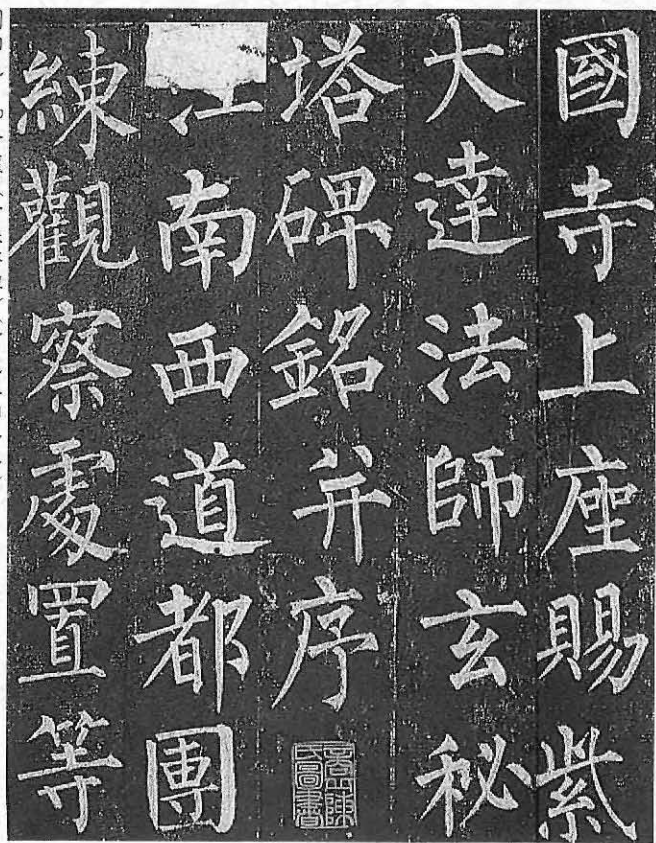 國寺上座賜紫
大達法師玄秘
塔碑銘并序
江南西道都團
練觀察處置等